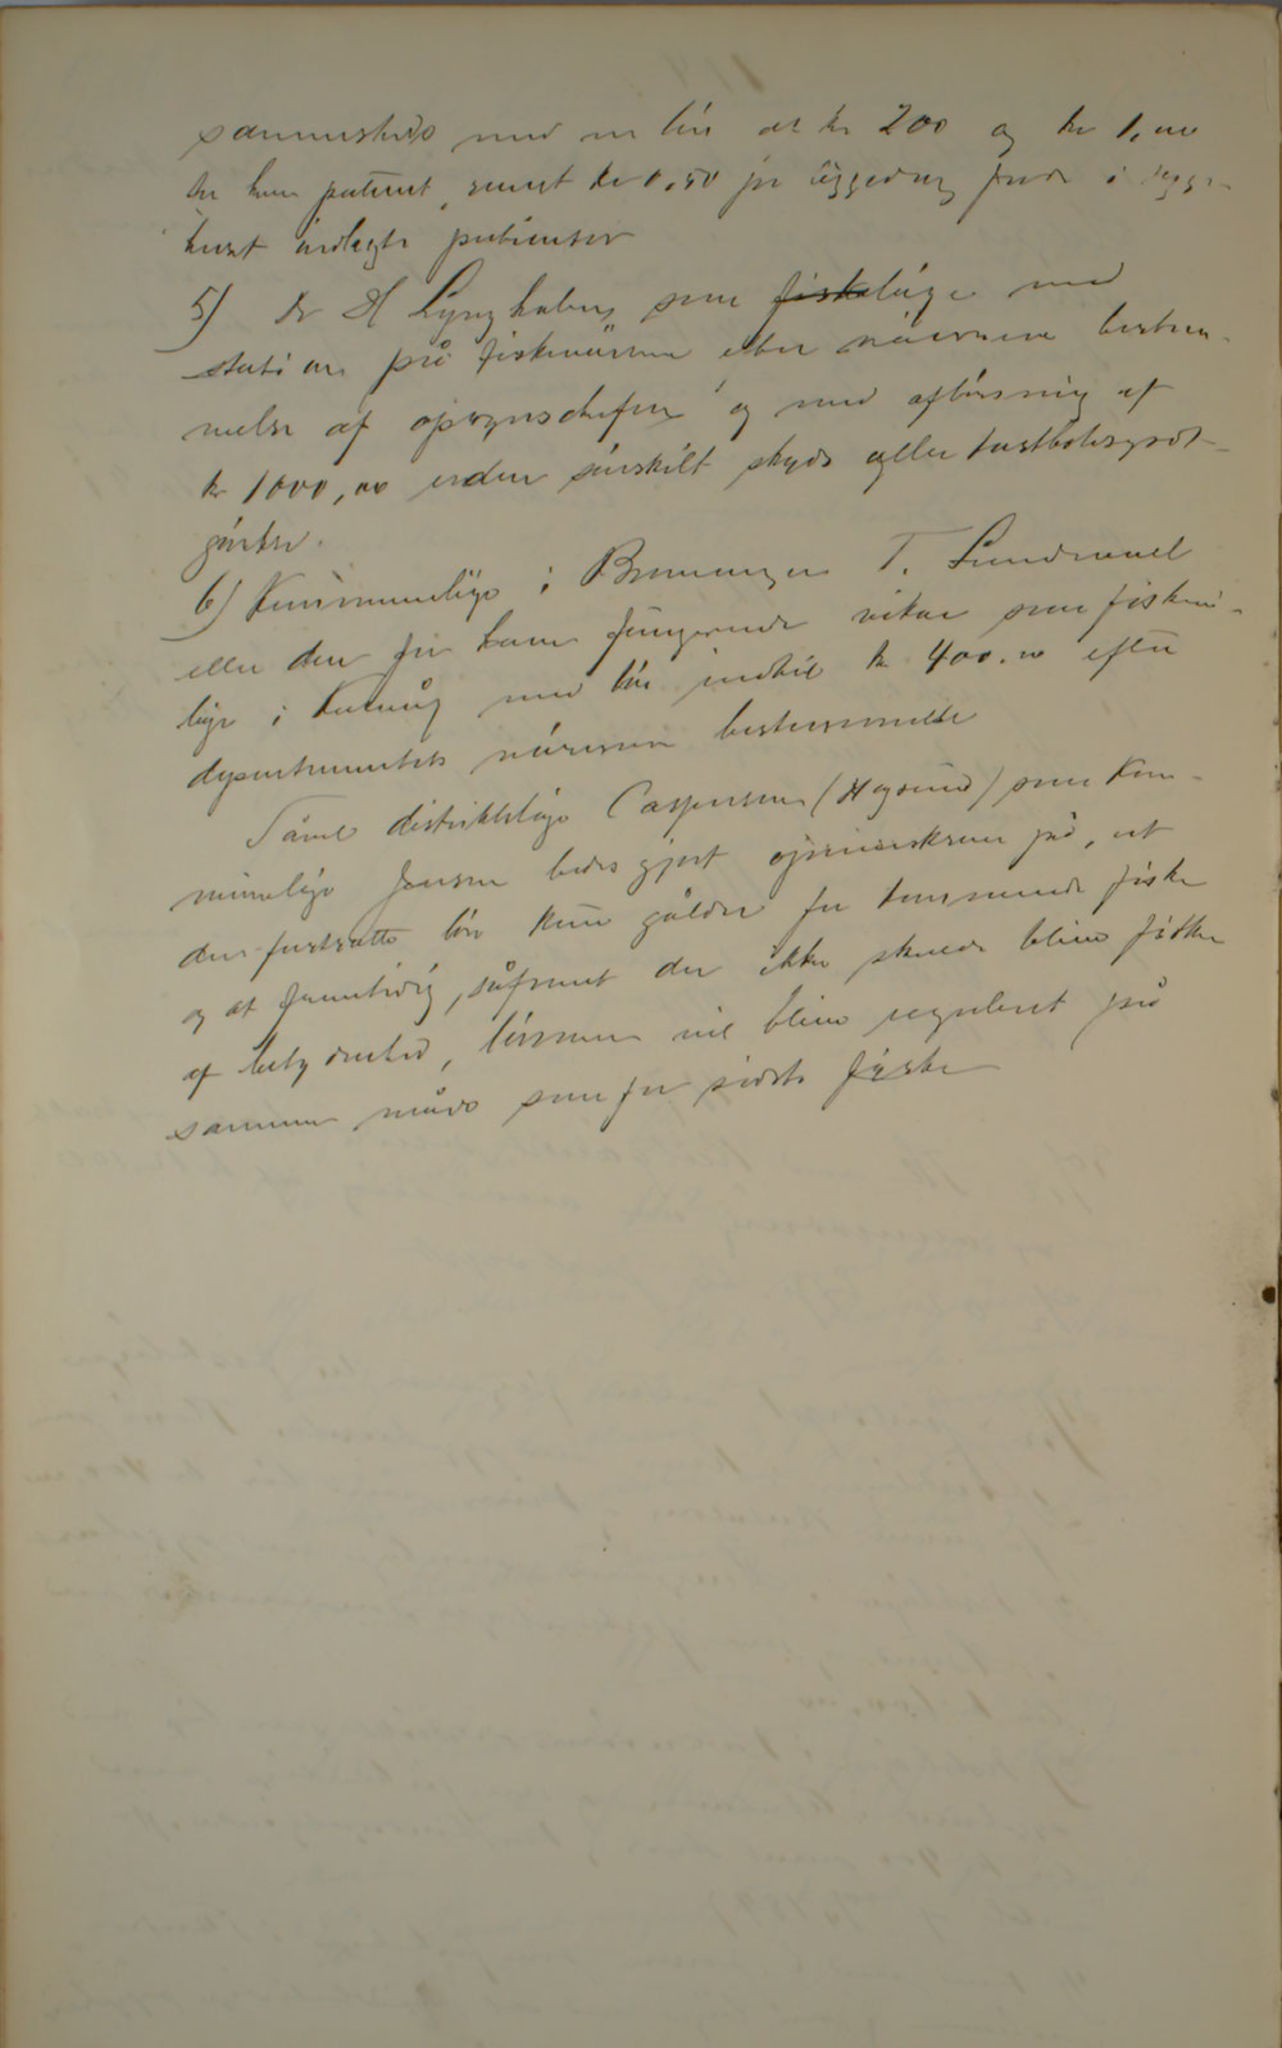 sammesteds med en løn af kr 200 og kr 1,00
for hver patient, samt kr 0,50 pr liggedag for de i syge-
huset indlagte patienter
5) Dr H Lyng som fiskelæge med
station på fiskeværene efter nærmere bestem-
melse af opsynschefen og med aflønning af
kr 1000,00 uden særskilt skyds eller kostholdsgodt-
gjørelse.
6) Kommunelæge i T. Sundvall
eller den for ham fungerende vikar som fiskeri-
læge i med løn indtil kr 400.00 efter
departementets nærmere bestemmelse
Såvel distriktslæge Caspersen (Høysund) som Kom-
munelæge Jensen bedes gjort opmerksom på, at
den fastsatte løn kun gjælder for kommende fiske
og at fremtidig, såfremt der ikke skulde blive fiske
af betydenhed, lønnen vil blive reguleret på
samme måde som for sidste fiske